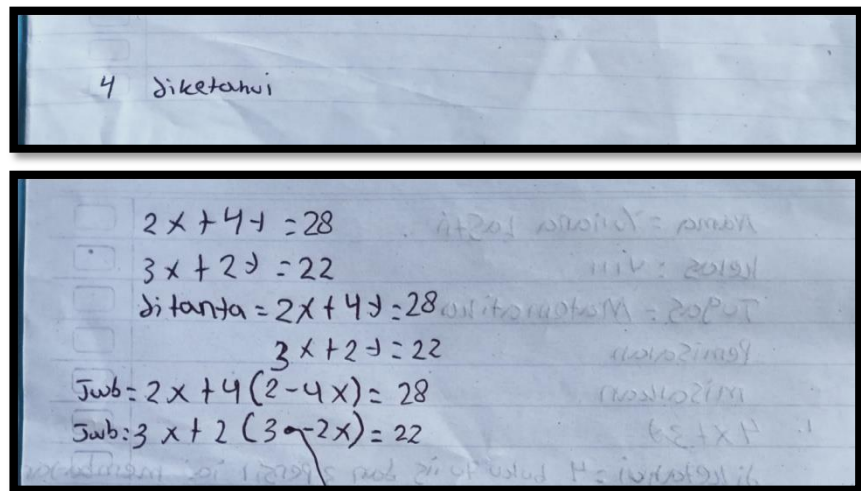 4 diketahui
2x + 4y = 28
3x + 2y = 22
ditanya = 2x + 4y = 28
3x + 2y = 22
Jwb = 2x + 4 (2 - 4x) = 28
Jwb : 3x + 2 (3 - 2x) = 22